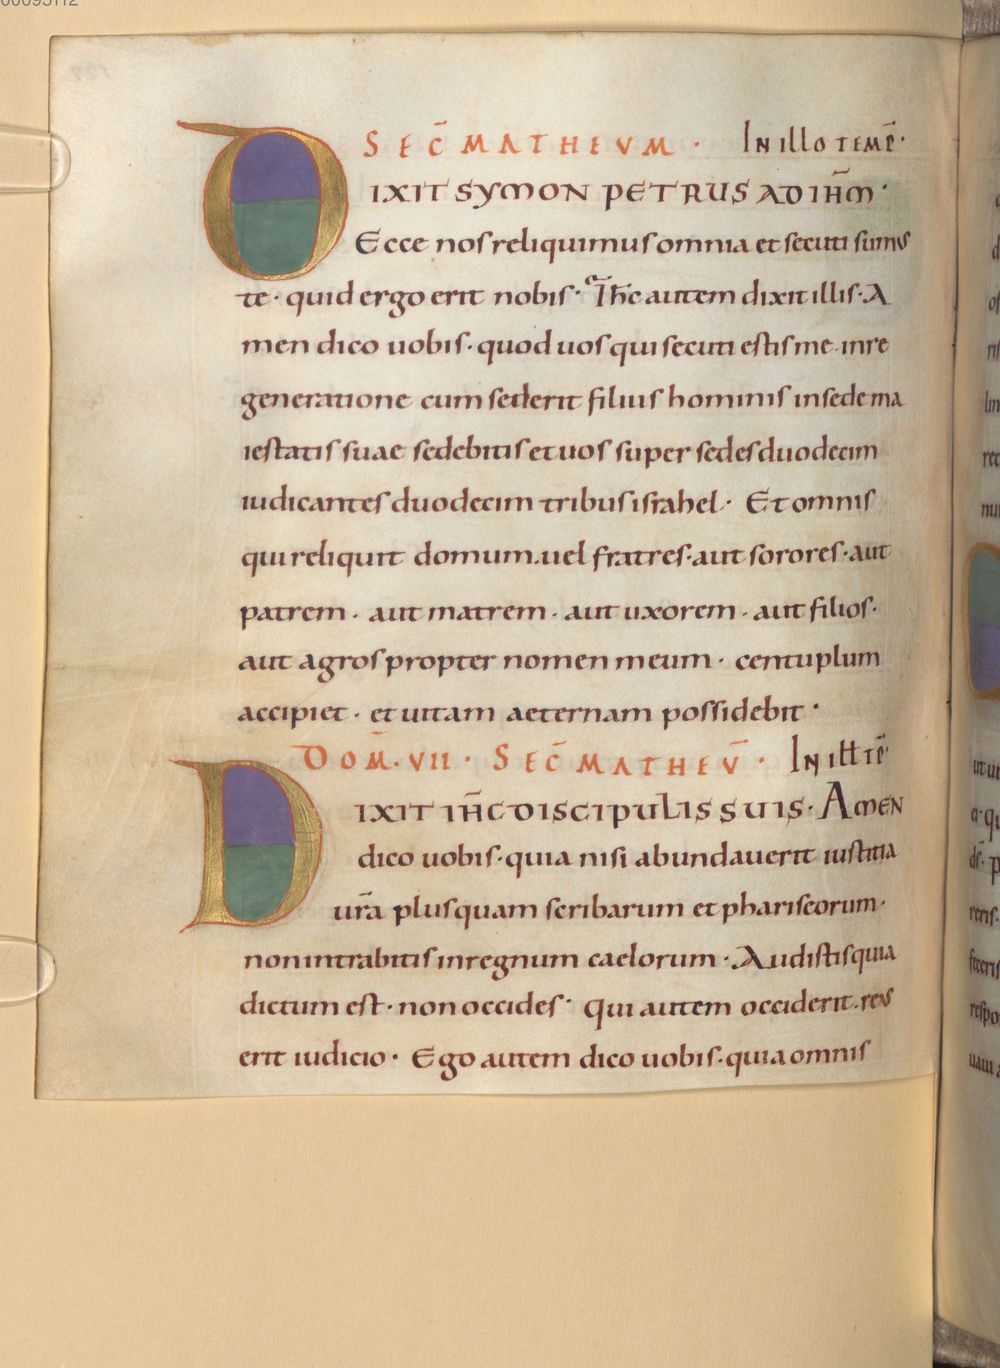 SEC̄ MATHEVM · IN ILLO TEMP̄·
DIXIT SYMON PETRUS AD IH̄M·
Ecce nos reliquimus omnia et secuti sumus
te· quid ergo erit nobis· Ih̄c autem dixit illis· A
men dico uobis· quod uos qui secuti estis me· in re
generatione cum sederit filius hominis in sede ma
iestatis suae sedebitis et uos super sedes duodecim
iudicantes duodecim tribus israhel· Et omnis
qui reliquit domum· uel fratres· aut sorores· aut
patrem· aut matrem· aut uxorem· aut filios·
aut agros propter nomen meum· centuplum
accipiet· et uitam aeternam possidebit·
DOM̄· VII· SEC̄ MATHEV̄· IN ILł TP̄·
DIXIT IH̄C DISCIPULIS SUIS· AMEN
dico uobis· quia nisi abundauerit iustitia
ur̄a plus quam scribarum et phariseorum·
non intrabitis in regnum caelorum· Audistis quia
dictum est· non occides· Qui autem occiderit· reus
erit iudicio· Ego autem dico uobis· quia omnis